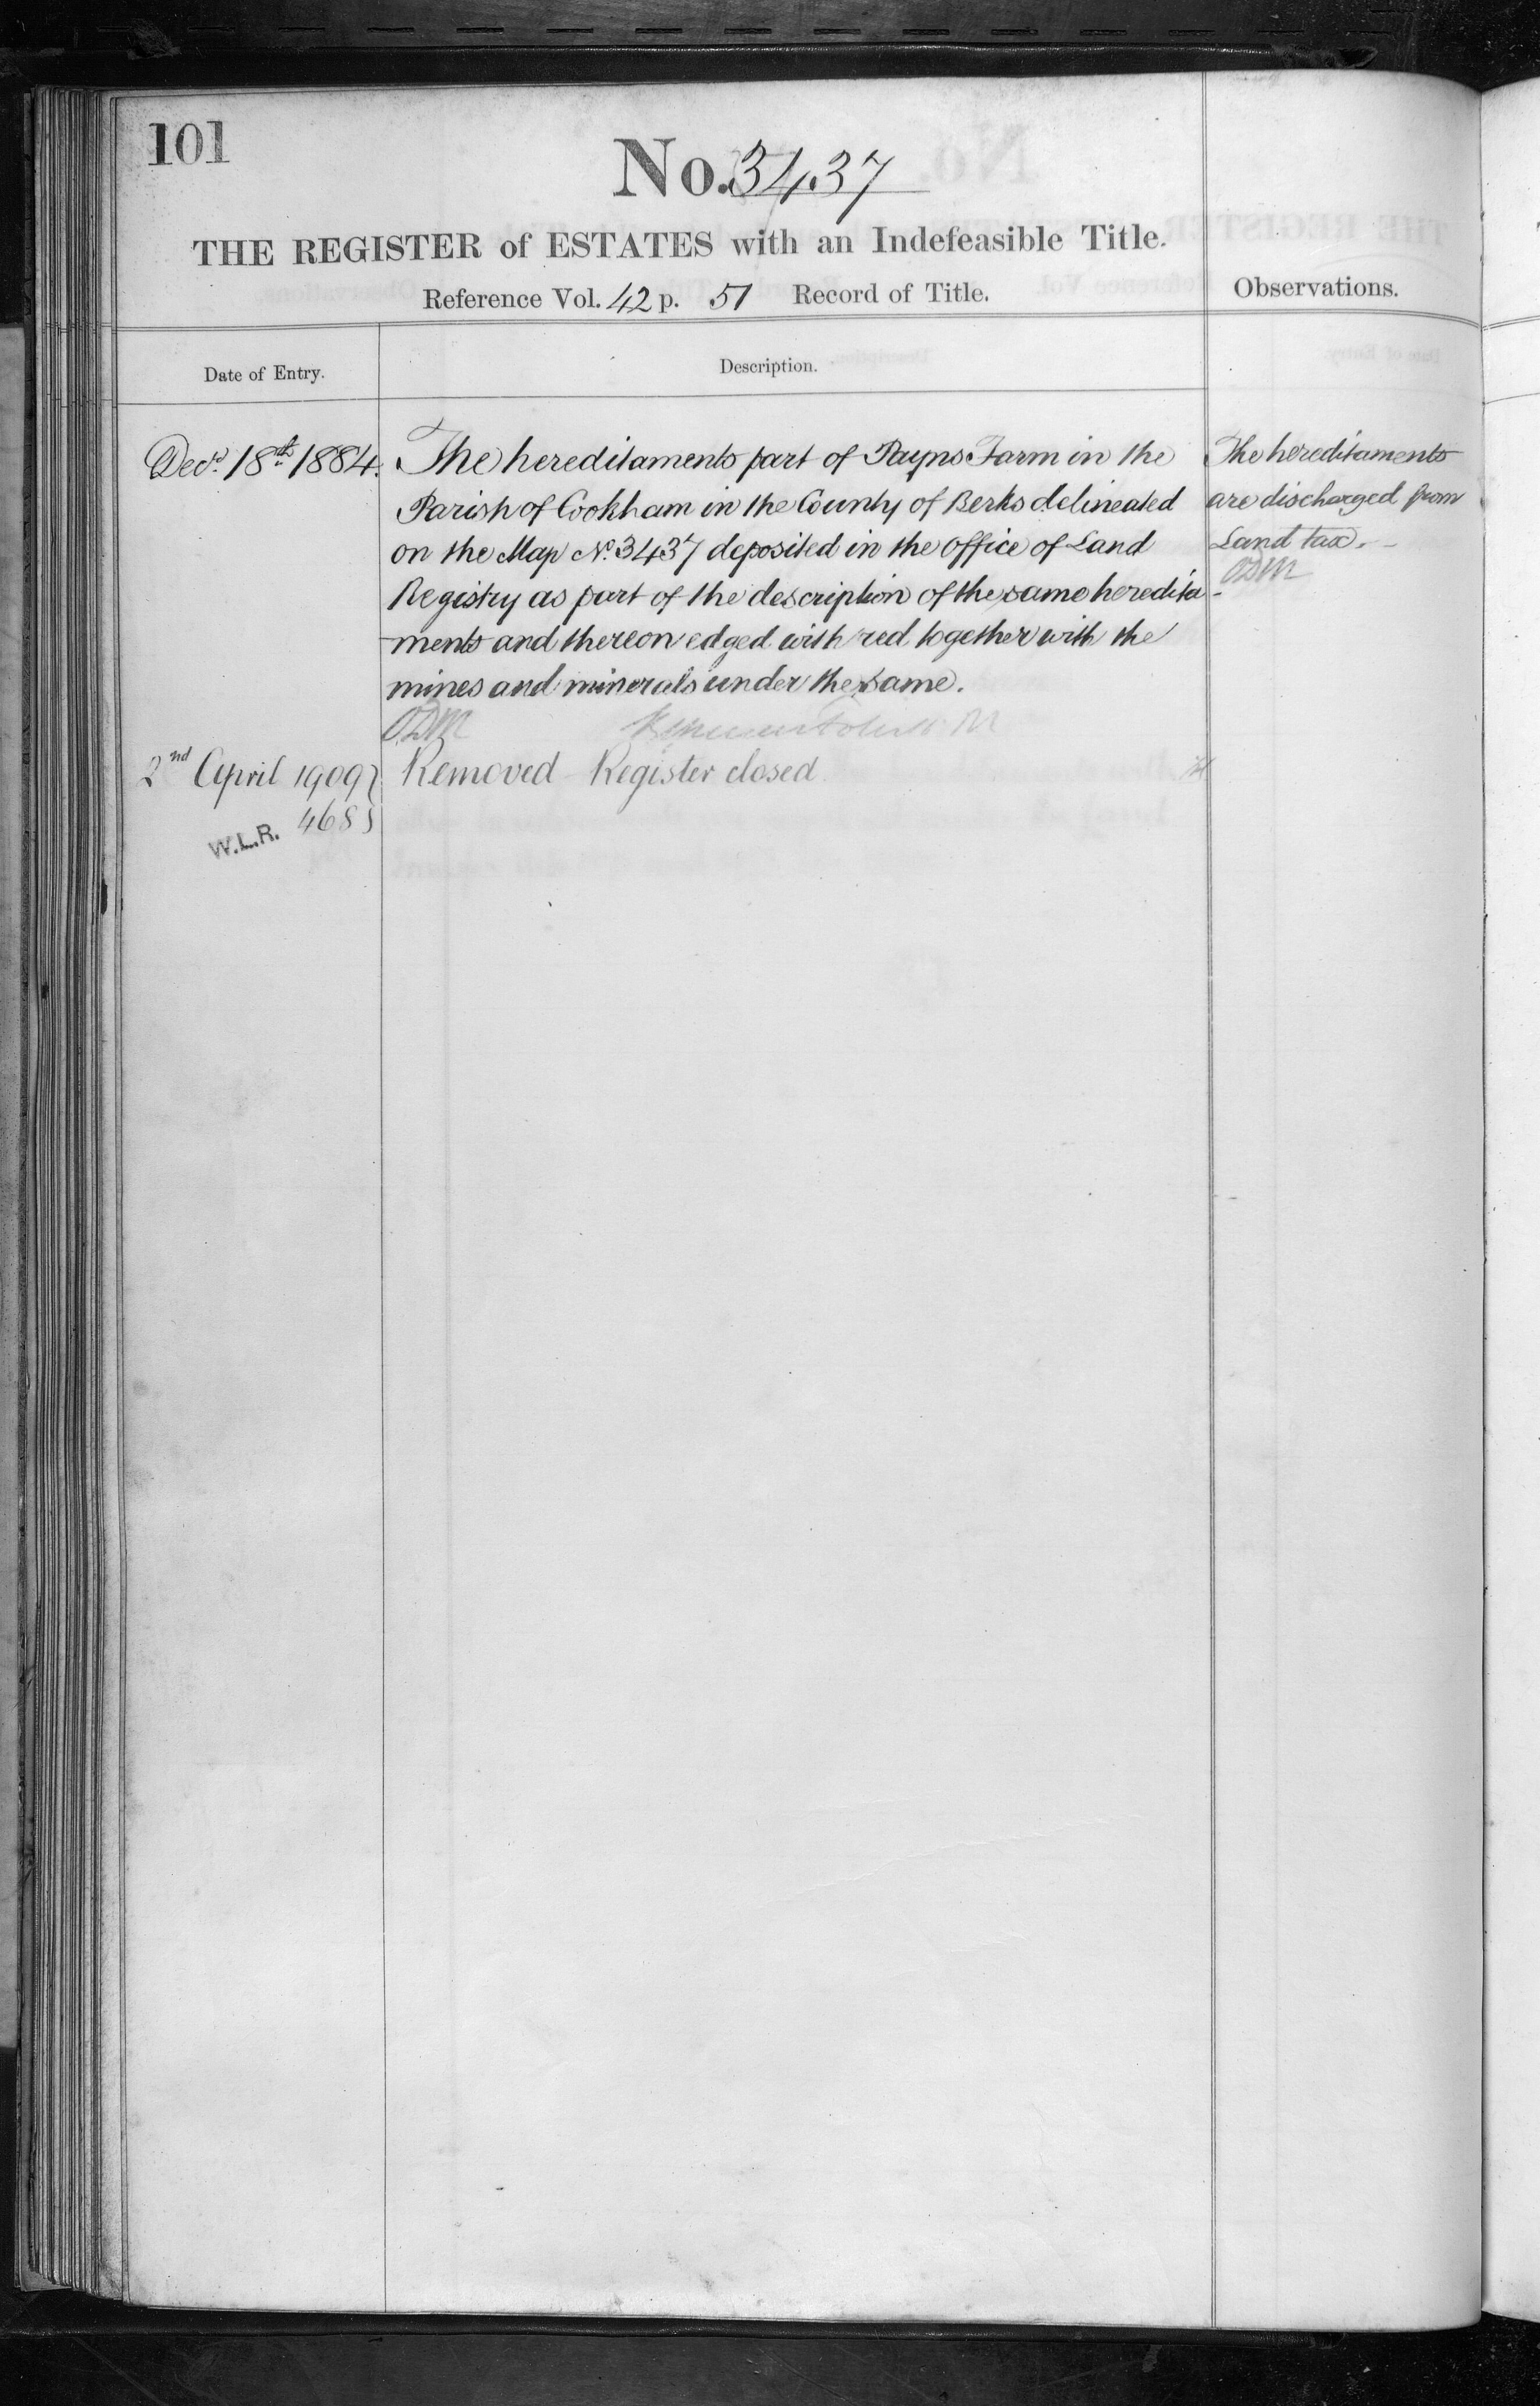 101
No. 3437
THE REGISTER of ESTATES with an Indefeasible Title.
Reference Vol. 42 p. 51 Record of Title.
Observations.
Date of Entry.
Description.
Decr. 18th 1884.
The hereditaments part of Payns Farm in the
Parish of Cookham in the County of Berks delineated
on the Map No. 3437 deposited in the office of Land
Registry as part of the description of the same heredita-
ments and thereon edged with red together with the
mines and minerals under the same.
ODM
The hereditaments
are discharged from
Land tax.
ODM
2nd April 1909
468
W.L.R.
Removed - Register closed